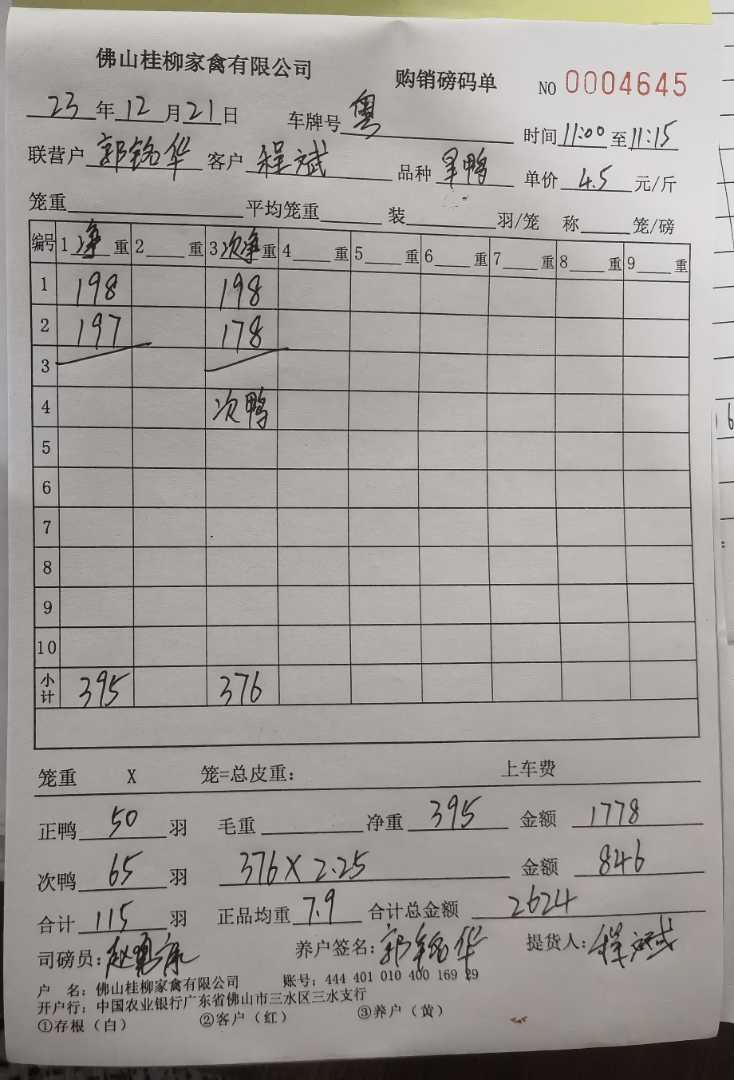 佛山桂柳家禽有限公司 购销磅码单 NO 0004645
23年12月21日 车牌号 粤 时间 11:00 至 11:15
联营户 郭铭华 客户 程斌 品种 单价 4.5 元/斤
笼重 平均笼重 装 羽/笼 称 笼/磅
编号 1 净 重 2 重 3 次净 重 4 重 5 重 6 重 7 重 8 重 9 重
1 198 198
2 197 178
3
4 次鸭
5
6
7
8
9
10
小计 395 376
笼重 X 笼=总皮重: 上车费
正鸭 50 羽 毛重 净重 395 金额 1778
次鸭 65 羽 376×2.25 金额 846
合计 115 羽 正品均重 7.9 合计总金额 2624
司磅员: 养户签名: 郭铭华 提货人: 程斌
户 名: 佛山桂柳家禽有限公司 账号: 444 401 010 400 169 29
开户行: 中国农业银行广东省佛山市三水区三水支行
①存根(白) ②客户(红) ③养户(黄)